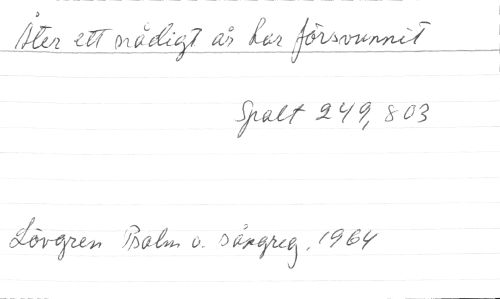 Åter ett nådigt år har försvunnit
Spalt 249, 803
Lövgren Psalm o. sångreg. 1964